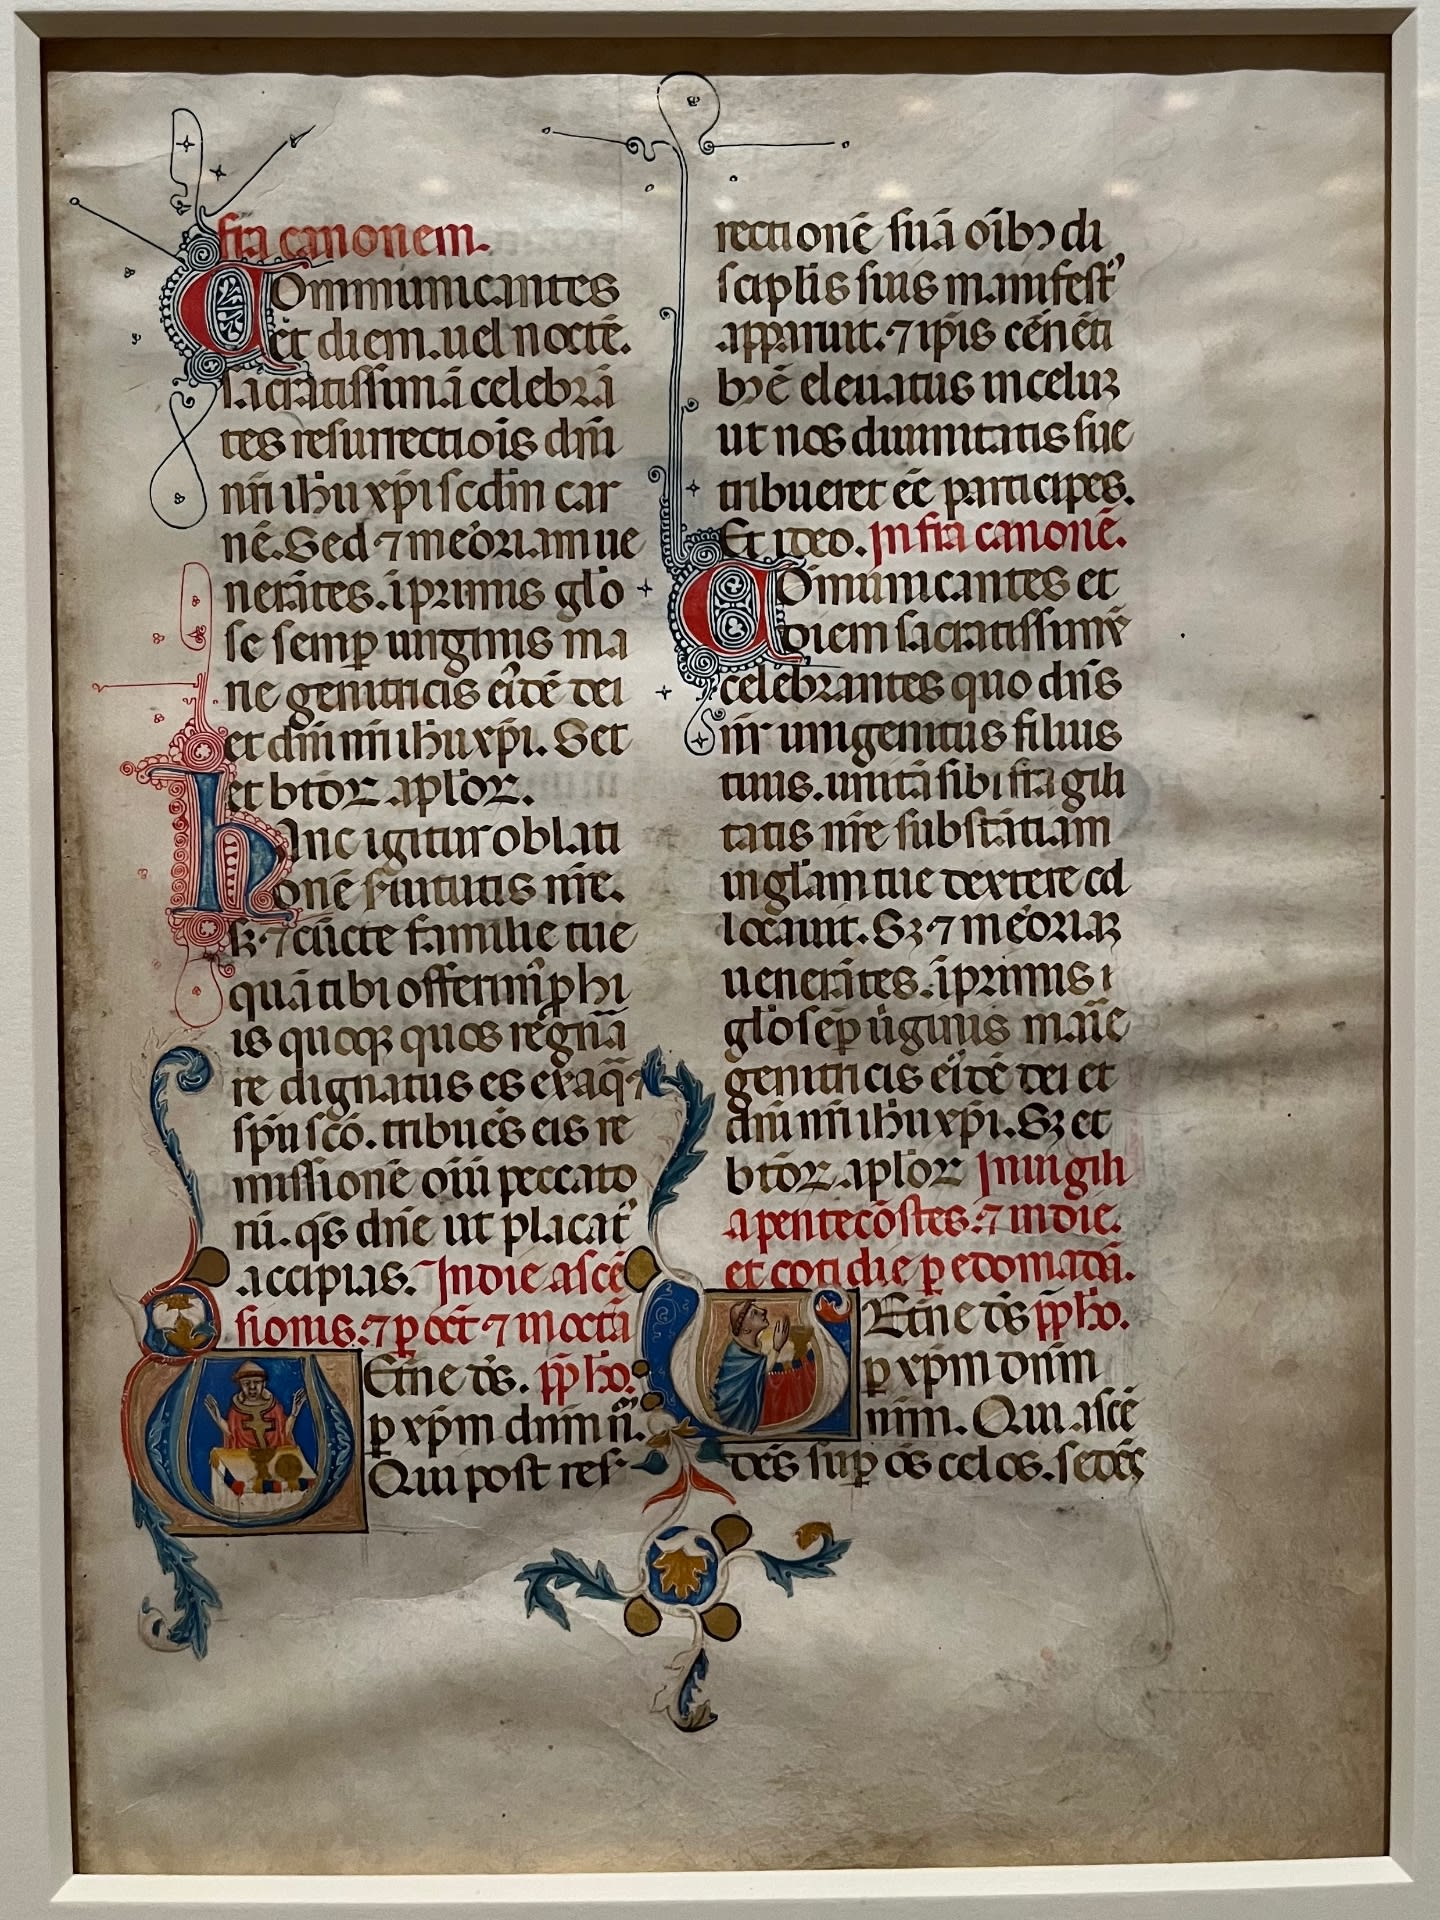 fra canonem.
Communicantes
et diem. uel noctē.
sacratissimā celebrā
tes resurrectiōis dn̄i
nr̄i ih̄u xp̄i scdm̄ car
nē. Sed ⁊ meōriam ue
nerātes. īprimis glo
se semꝑ uirginis ma
rie genitricis eiꝰdē dei
et dn̄i nr̄i ih̄u xp̄i. Set
et btōꝝ aplōꝝ.
Hanc igitur oblati
onē seruitutis nr̄e.
sꝫ ⁊ cūcte familie tue
quā tibi offerimꝰ ꝓ hi
is quoqꝫ quos regn̄a
re dignatus es ex aq̄ ⁊
sp̄u scō. tribuēs eis re
missionē oīu peccato
rū. qs̄ dn̄e ut placatꝰ
accipias. In die ascē
sionis. ⁊ ꝑ oct̄ ⁊ in octā
UEtn̄e ds̄. p̄p̄ho.
ꝑ xp̄m dnm̄ n̄.
Qui post resꝰ
rectionē suā oībꝫ di
scipl̄is suis manifestꝰ
apparuit. ⁊ ip̄is cērnēti
bꝫ ē eleuatus in celuꝫ
ut nos diuinitatis sue
tribueret eē participes.
Et ideo. Infra canonē.
Comūnicantes et
diem sacratissimū
celebrantes quo dn̄s
nr̄ unigenitus filius
tuus. unitā sibi fragili
tatis nr̄e substātiam
in gl̄am tue dextere col
locauit. Sꝫ ⁊ meōriaꝫ
uenerātes. īprimis i
glo sēꝑ ūginis marie
genitricis eiꝰdē dei et
dn̄i nr̄i ih̄u xp̄i. Sꝫ et
btōꝝ aplōꝝ In uigili
a pentecōstes. ⁊ in die.
et cotidie ꝑ edomadā.
UEtn̄e ds̄ p̄p̄ho.
ꝑ xp̄m dnm̄
nrm̄. Qui ascē
dēs suꝑ oēs celos. sedēsqꝫ